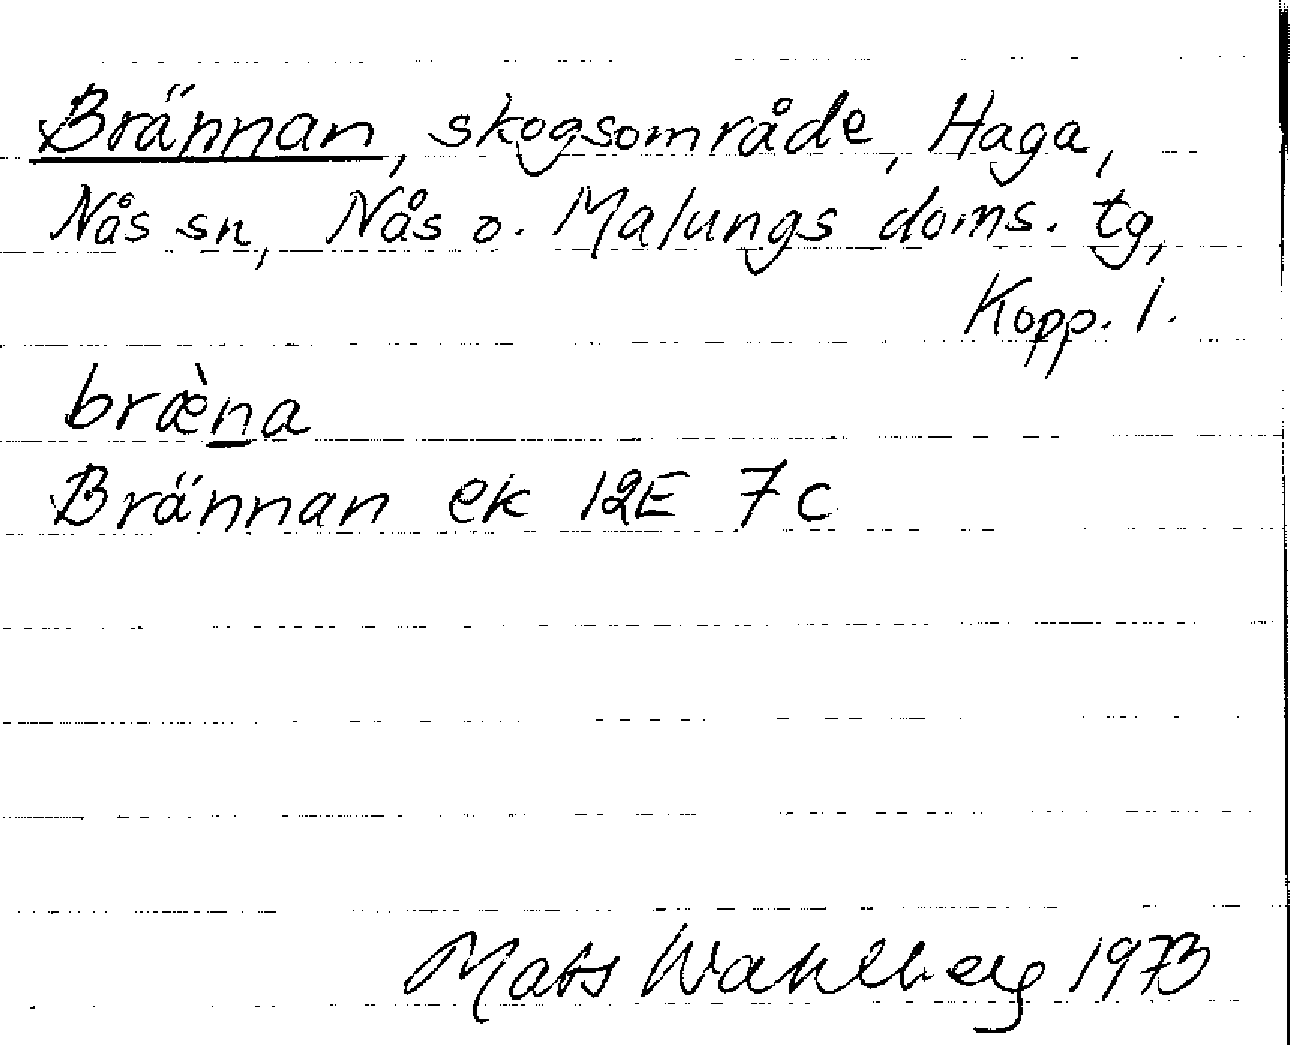 Brännan, skogsområde, Haga,
Nås sn, Nås o. Malungs doms. tg,
Kopp. l.
bræ̀n̲a
Brännan ek 12E 7c
Mats Wahlberg 1973